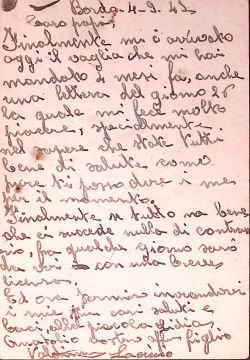 Bordo - 4-9-43
Caro papà
Finalmente mi è arrivato
oggi il vaglia che mi hai
mandato 2 mesi fa, anche
una lettera del giorno 26
la quale mi fece molto
piacere, specialmente
nel sapere che state tutti
bene di salute come
pure ti posso dire di me
per il momento.
Finalmente se tutto va bene
che ci succede nulla di contra
rio, fra qualche giorno sarò
da voi con una breve
licenza.
Ed ora termino inviandovi
i miei cari saluti e
baci, alla piccola Lidia
vostro figlio